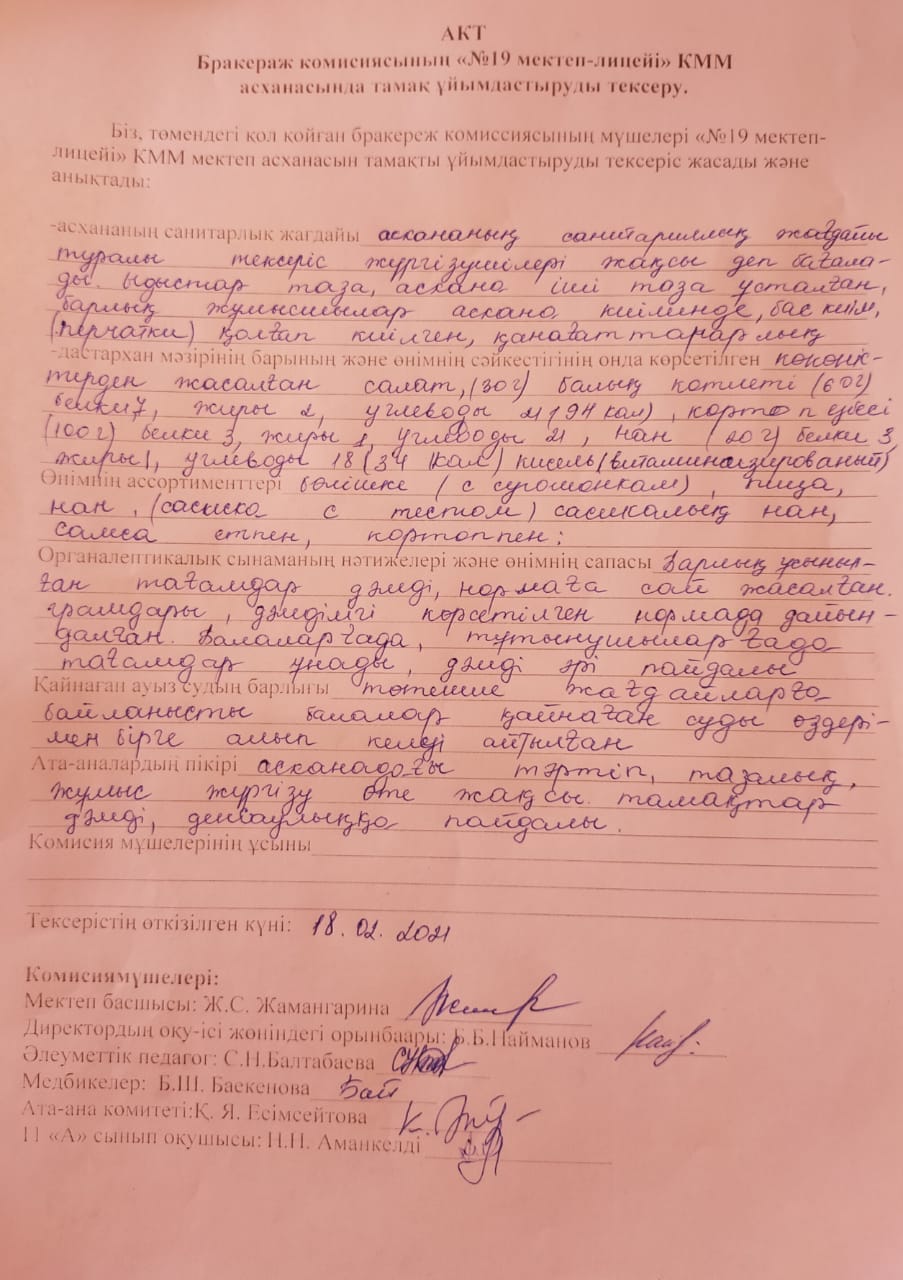 АКТ
Бракераж комисиясының «№19 мектеп-лицейі» КММ
асханасында тамақ ұйымдастыруды тексеру.
Біз, төмендегі қол қойған бракереж комиссиясының мүшелері «№19 мектеп-
лицейі» КММ мектеп асханасын тамақты ұйымдастыруды тексеріс жасады және
анықтады:
-асхананың санитарлық жағдайы аскананың санитариялық жағдайы
туралы тексеріс жүргізушілері жақсы деп бағала-
ды. Ыдыстар таза, аскана іші таза ұсталған,
барлық жұмысшылар аскана киімінде, бас киім,
(перчатки) қолғап киілген, қанағаттанарлық
-дастархан мәзірінің барының және өнімнің сәйкестігінің онда көрсетілген көкөніс-
терден жасалған салат, (30г) балық котлеті (60г)
белки 7, жиры 2, углеводы 4 (94 кал), картоп езбесі
(100г) белки 3, жиры углеводы 21, нан (20г) белки 3,
жиры 1, углеводы 18 (34 кал) кисель (витаминизированый)
Өнімнің ассортименттері бәлішке (с сгущонкам), пицца,
нан, (сасиска с тестом) сасикалық нан,
самса етпен, картоппен;
Органалептикалық сынаманың нәтижелері және өнімнің сапасы Барлық ұсыныл-
ған тағамдар дәмді, нормаға сай жасалған.
грамдары, дәмділігі көрсетілген нормада дайын-
далған. Балаларғада, тұтынушыларғада
тағамдар ұнады, дәмді әрі пайдалы
Қайнаған ауыз судың барлығы төтенше жағдайларға
байланысты балалар қайнаған суды өздері-
мен бірге алып келеді айтылған
Ата-аналардың пікірі асканадағы тәртіп, тазалық,
жұмыс жүргізу өте жақсы. тамақтар
дәмді, денсаулыққа пайдалы.
Комисия мүшелерінің ұсыны
Тексерістің өткізілген күні: 18.02.2021
Комисиямүшелері:
Мектеп басшысы: Ж.С. Жамангарина
Директордың оқу-ісі жөніндегі орынбаары: Б.Б.Найманов
Әлеуметтік педагог: С.Н.Балтабаева
Медбикелер: Б.Ш. Баекенова
Ата-ана комитеті:Қ. Я. Есімсейтова
11 «А» сынып оқушысы: Н.Н. Аманкелді